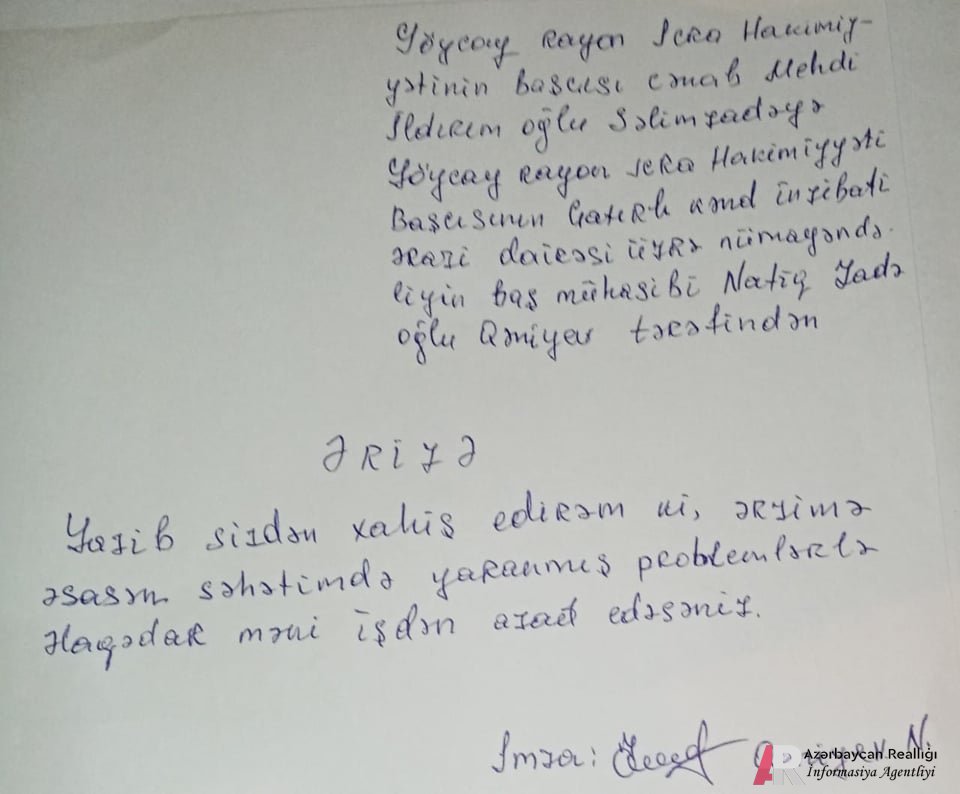 Göyçay rayon İcra Hakimiy-
yətinin başçısı cənab Mehdi
İldırım oğlu Səlimzadəyə
Göyçay rayon icra Hakimiyyəti
Başçısının Çaxırlı kənd inzibati
ərazi dairəsi üzrə nümayəndə-
liyin baş mühasibi Natiq Zadə
oğlu Qəniyev tərəfindən
ƏRİZƏ
Yazıb sizdən xahiş edirəm ki, ərzimə
əsasən səhətimdə yaranmış problemlərlə
əlaqədar məni işdən azad edəsəniz.
İmza: Qəniyev N.
AR Azərbaycan Reallığı
Informasiya Agentliyi